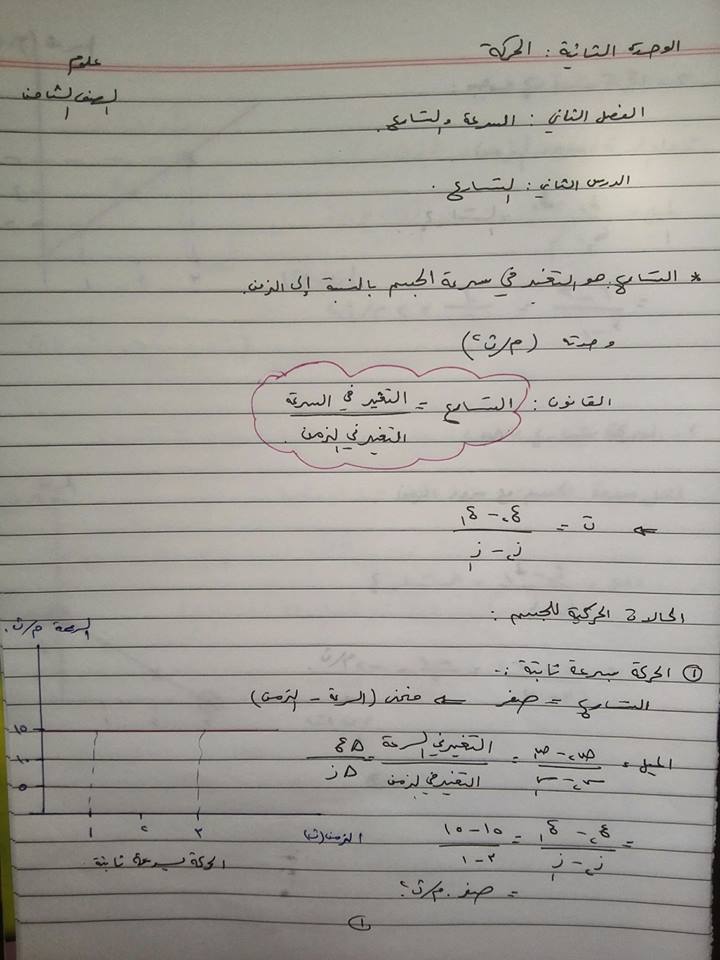 الوحدة الثانية : الحركة
علوم
الصف الثامن
الفصل الثاني : السرعة والتسارع .
الدرس الثاني : التسارع .
* التسارع : هو التغير في سرعة الجسم بالنسبة إلى الزمن .
وحدته ( م/ث٢ )
القانون : التسارع = التغير في السرعة / التغير في الزمن .
← ت = ع٢ - ع١ / ز٢ - ز١
الحالات الحركية للجسم :
① الحركة بسرعة ثابتة :-
التسارع = صفر ← منحنى ( السرعة - الزمن )
الميل = ص٢ - ص١ / س٢ - س١ = التغير في السرعة / التغير في الزمن = Δع / Δز
= ع٢ - ع١ / ز٢ - ز١ = ١٥ - ١٥ / ٣ - ١
= صفر . م/ث٢
السرعة م/ث .
١٥
١٠
٥
١ ٢ ٣ الزمن (ث)
الحركة بسرعة ثابتة
①